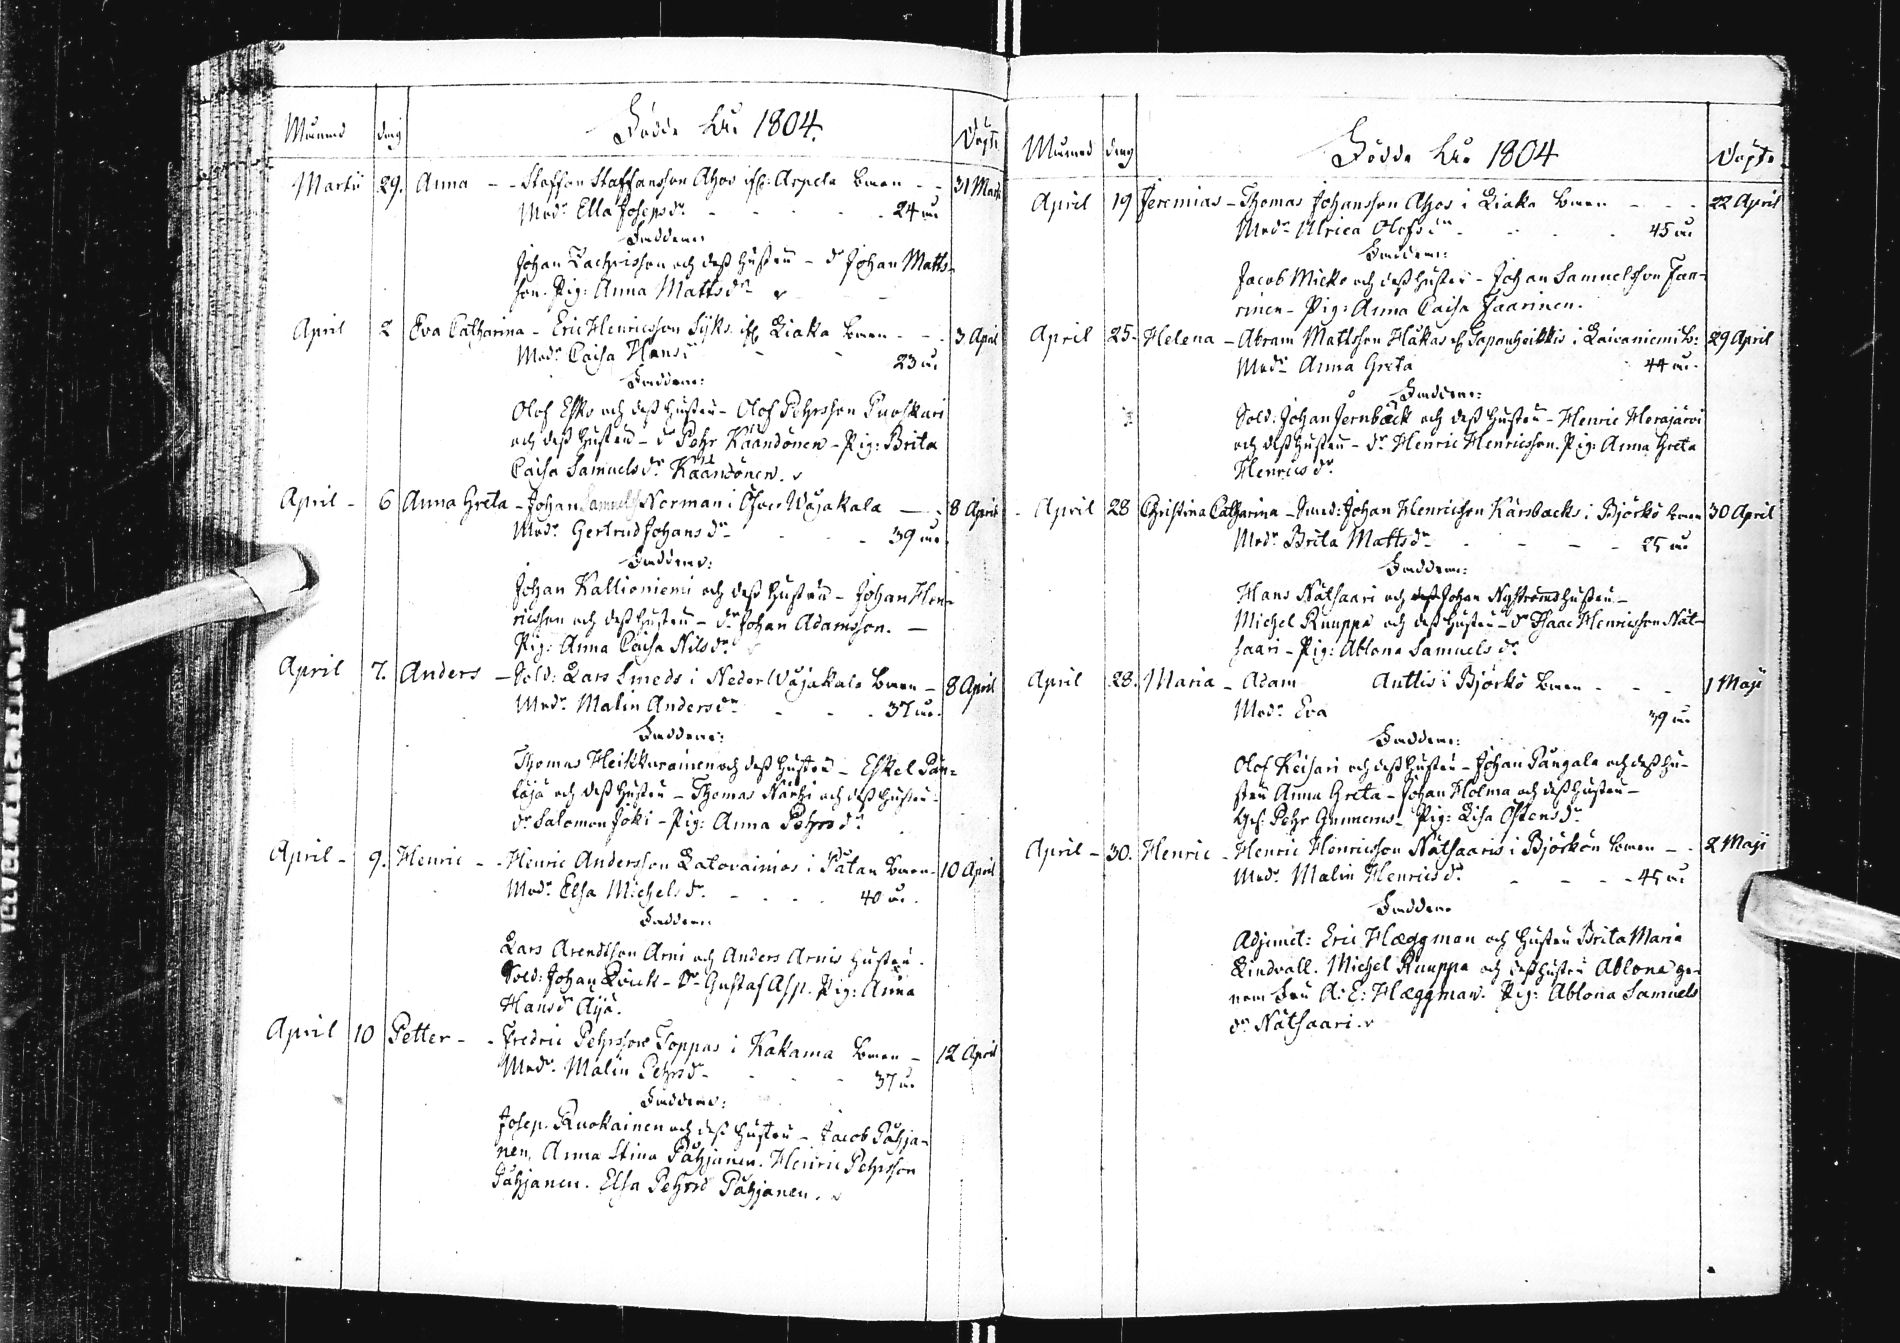 Månad dag Födde År 1804. Döpte
Martii 29. Anna - - Staffan Staffansson Ahos ifr: Arpela barn - - 31 Martii
Modr Ella Josepsdr - - - - - 24 år
Faddrar:
Johan Zachrisson och dess hustru - dr Johan Matts-
son. Pig: Anna Mattsdr
April 2 Eva Catharina - Eric Henricsson Syks ifr Liaka barn - - 3 April
Modr Caisa Hansdr - - 23 år
Faddrar:
Olof Esko och dess hustru - Olof Pehrsson Puoskari
och dess hustru - dr Pehr Käändönen - Pig: Brita
Caisa Samuelsdr Käändönen.
April - 6 Anna Greta - Johan Samuels Norman i Öfver Wåjakala - 8 April
Modr Gertrud Johansdr - - - 39 år
Faddrar:
Johan Kallioniemi och dess hustru - Johan Hen-
ricsson och dess hustru - dr Johan Adamsson. -
Pig: Anna Caisa Nilsdr
April 7. Anders - Sold: Lars Smeds i Neder Wåjakala barn - 8 April
Modr Malin Andersdr - - - 37 år.
Faddrar:
Thomas Heikkurainen och dess hustru - Eskel
och dess hustru - Thomas Närhi och dess hustru -
dr Salomon Joki - Pig: Anna Pehrsdr
April - 9. Henric - - Henric Andersson Latovainios i Pätan barn - 10 April
Modr Elsa Michelsdr - - - - 40 år.
Faddrar:
Lars Arendtson Arni och Anders Arnis hustru.
Sold: Johan Qvick - Dr Gustaf Asp. Pig: Anna
Hansdr Äijä.
April 10 Petter - - Fredric Pehrsson Toppas i Kakama barn - 12 April
Modr Malin Pehrsdr - - - 37 år
Faddrar:
Josep Ruokainen och dess hustru - Jacob Påhja-
nen, Anna Stina Påhjanen. Henric Pehrsson
Påhjanen. Elsa Pehrsd Påhjanen.
Månad dag Födde År 1804 Döpte
April 19 Jeremias - Thomas Johansson Ahos i Liaka barn - - - 22 April
Modr Ulrica Olofsdr - - - 45 år
Faddrar:
Jacob Micko och dess hustru - Johan Samuelsson Jaa-
rinen - Pig: Anna Caisa Jaarinen.
April 25. Helena - Abram Mattsson Håkas el Sapanheikkis i Laivaniemi b: 29 April
Modr Anna Greta 44 år.
Faddrar:
Sold: Johan Jernbäck och dess hustru - Henric Herajärvi
och dess hustru - dr Henric Henricsson. Pig: Anna Greta
Henricsdr
April 28 Christina Catharina - Inh: Johan Henricsson Kårsbacks i Björkö barn 30 April
Modr Brita Mattsdr - - - 25 år
Faddrar:
Hans Nätsaari och dess Johan Nyströms hustru -
Michel Ruuppa och dess hustru - dr Isaac Henricsson Nät-
saari - Pig: Ablona Samuelsdr
April 28. Maria - Adam Anttis i Björkö barn - - - 1 Maji
Modr Eva 39 år
Faddrar:
Olof Keisari och dess hustru - Johan Pangala och dess hu-
stru Anna Greta - Johan Holma och dess hustru -
Pehr Gunnerus - Pig: Lisa Östensdr
April - 30. Henric - Henric Henricsson Nätsaaris i Björkön barn - - 2 Maji
Modr Malin Henricsdr - - - 45 år
Faddrar
Adjunct: Eric Hæggman och hustru Brita Maria
Lindvall. Michel Ruuppa och dess hustru Ablona ge-
nom Fru A: E: Hæggman. Pig: Ablona Samuels
dr Nätsaari.